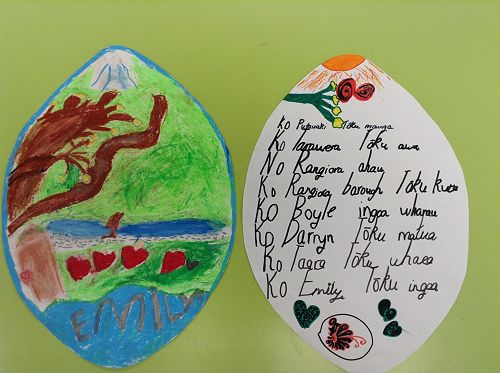 EMILY
Ko Pupuaki Toku maunga
Ko Tarawera Toku awa
No Rangiora ahau
Ko Rangiora borough Toku kura
Ko Boyle ingoa whanau
Ko Darryn Toku matua
Ko Tagra Toku whaea
Ko Emily Toku ingoa